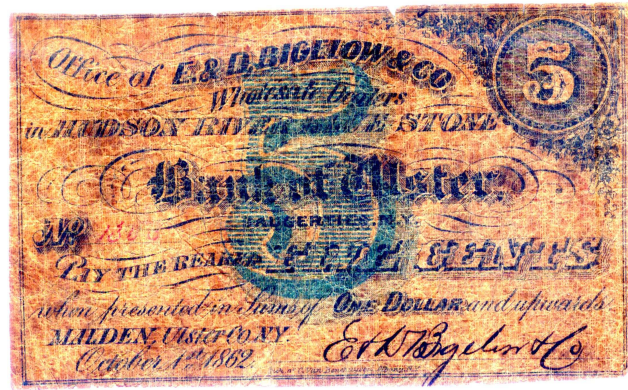 Office of E. & D. BIGELOW & CO. 5
Wholesale Dealers
in HUDSON RIVER BLUE STONE
Bank of Ulster,
SAUGERTIES, N.Y.
No
PAY THE BEARER FIVE CENTS
when presented in Sums of ONE DOLLAR and upwards.
MALDEN, Ulster Co. N.Y.
October 1st 1862.
E & D Bigelow & Co